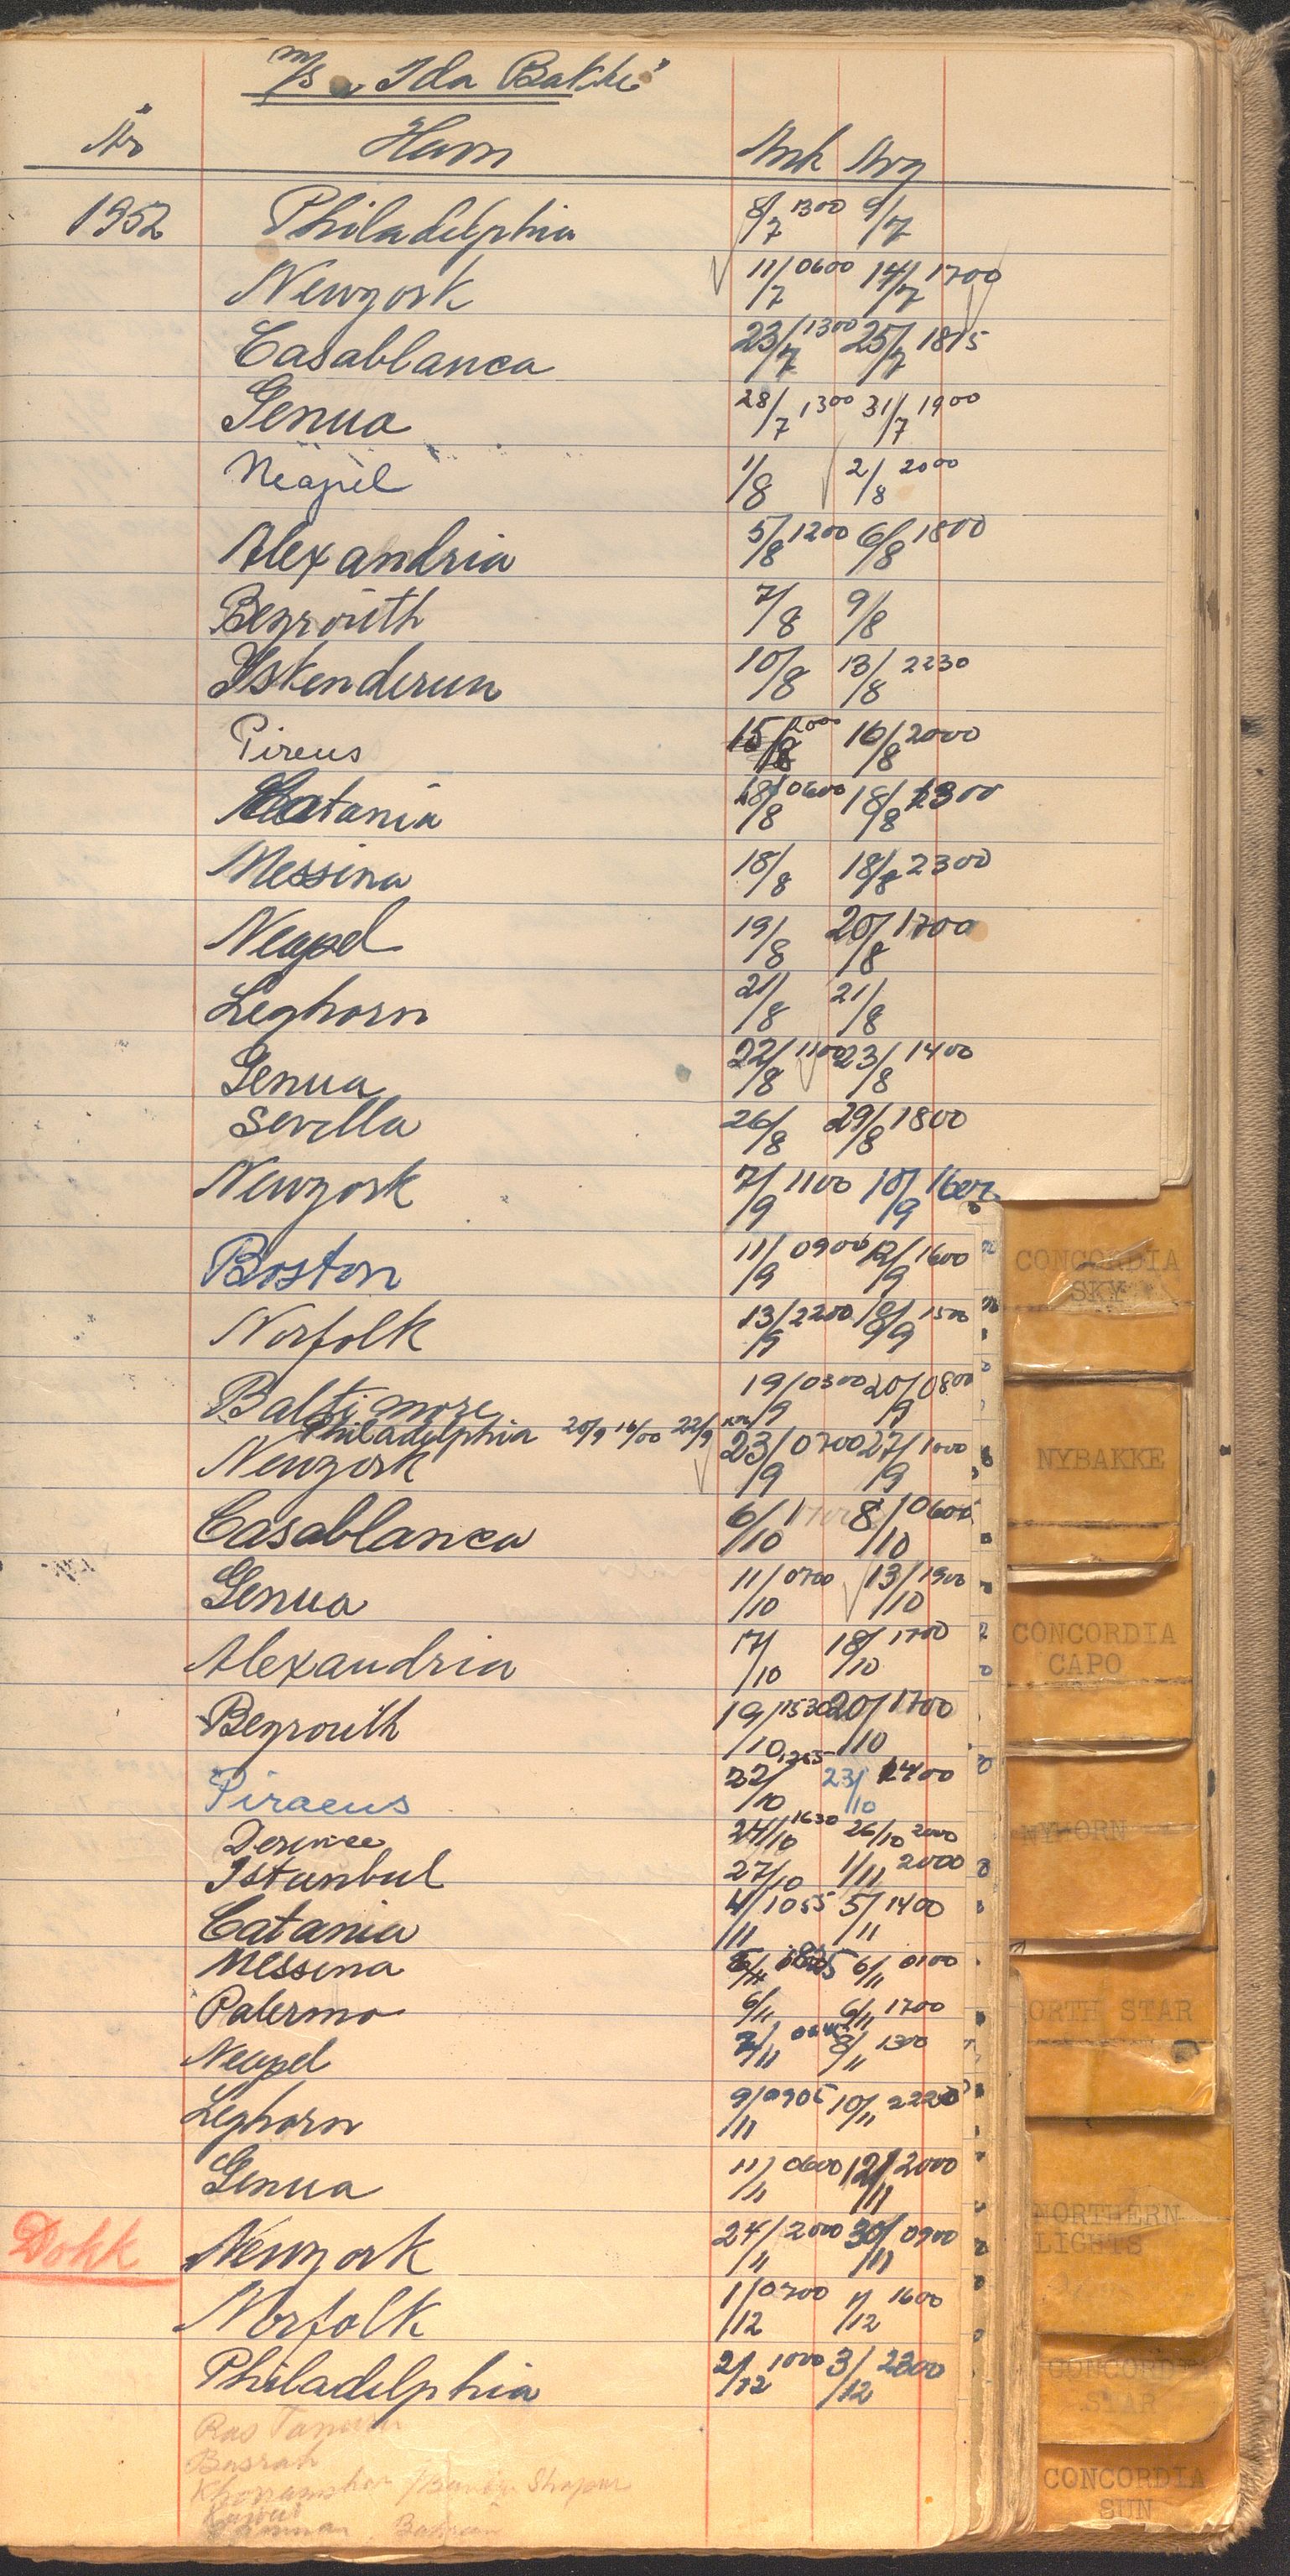 m/s "Ida Bakke"
År Havn Ank Avg
1952 Philadelphia 8/7 1300 9/7
Newyork 11/7 0600 14/7 1700
Casablanca 23/7 1300 25/7 1815
Genua 28/7 1300 31/7 1900
Neapel 1/8 2/8 2000
Alexandria 5/8 1200 6/8 1800
Beyrouth 7/8 9/8
Iskenderun 10/8 13/8 2230
Pireus 15/8 2000 16/8 2000
Catania 18/8 0600 18/8 1300
Messina 18/8 18/8 2300
Neapel 19/8 20/8 1700
Leghorn 21/8 21/8
Genua 22/8 1100 23/8 1400
Sevilla 26/8 29/8 1800
Newyork 7/9 1100 10/9
Boston 11/9 0900 12/9 1600
Norfolk 13/9 2200 1500
Baltimore 19/9 0300 20/9 0800
Philadelphia 20/9 16/00 22/9
Newyork 23/9 0700 27/9 1000
Casablanca 6/10 8/10 0600
Genua 11/10 0700 13/10 1900
Alexandria 17/10 18/10 1700
Beyrouth 19/10 1530 20/10 1700
Piraeus 22/10 23/10 2400
Derince 24/10 1630 26/10 2000
Istanbul 27/10 1/11 2000
Catania 4/11 1055 5/11 1400
Messina 5/11 6/11 0100
Palermo 6/11 6/11 1700
Neapel 7/11 8/11 1300
Leghorn 9/11 0905 10/11 2220
Genua 11/11 0600 12/11 2000
Dokk Newyork 24/11 2000 30/11 0900
Norfolk 1/12 0700 1/12 1600
Philadelphia 2/12 1000 3/12 2300
Ras Tanura
Basrah
Khorramshar / Bandar Shapur
Bahrein
CONCORDIA
SKY
NYBAKKE
CONCORDIA
CAPO
NYHORN
NORTH STAR
NORTHERN
LIGHTS
CONCORDIA
STAR
CONCORDIA
SUN